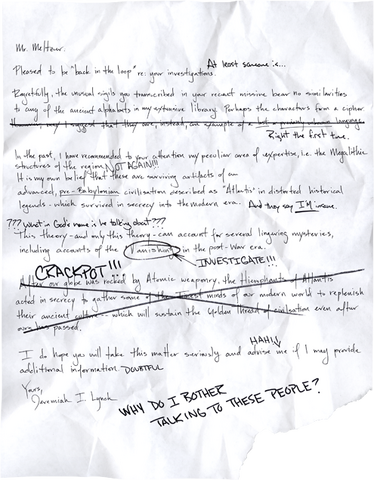 Mr. Meltzer.
At least someone is...
Pleased to be "back in the loop" re: your investigations.
Regretfully, the unusual sigils you transcribed in your recent missive bear no similarities
to any of the ancient alphabets in my extensive library. Perhaps the characters form a cipher
may I suggest that they are, instead, an example of a lost or previously unknown language.
Right the first time.
In the past, I have recommended to your attention my peculiar area of expertise, i.e. the Megalithic
structures of the region. NOT AGAIN!!!
It is my own belief that these are surviving artifacts of an
advanced, pre-Babylonian civilisation described as 'Atlantis' in distorted historical
legends - which survived in secrecy into the modern era. And they say I'M insane.
??? What in God's name is he talking about???
This theory - and only this theory - can account for several lingering mysteries,
including accounts of the Vanishing in the post-War era.
INVESTIGATE!!!
CRACKPOT!!!
After our globe was rocked by Atomic weaponry, the Hierophants of Atlantis
acted in secrecy to gather some of the minds of our modern world to replenish
their ancient culture - which will sustain the Golden Thread of civilisation even after
ours has passed.
HAH!!
I do hope you will take this matter seriously and advise me if I may provide
additional information. DOUBTFUL
Yours,
Jeremiah I. Lynch
WHY DO I BOTHER
TALKING TO THESE PEOPLE?